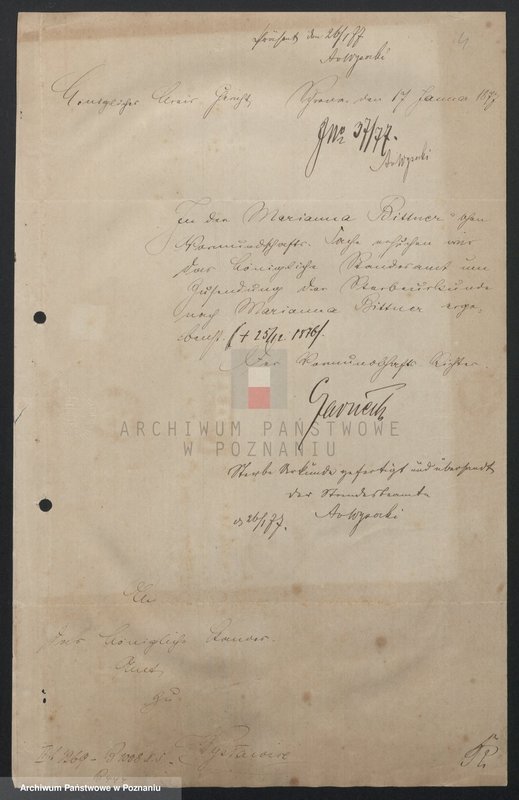 Präsent. den 26/1 77
AvWysocki
4
Königliches Kreis-Gericht, Schrimm, den 17 Januar 1877
J№ 37/77.
AvWysocki
In der Marianna Bittner'schen
Vormundschafts-Sache ersuchen wir
das Königliche Standesamt um
Zusendung der Sterbeurkunde
nach Marianna Bittner erge-
benst. († 25/12. 1876).
Der Vormundschafts-Richter.
ARCHIWUM PAŃSTWOWE
W POZNANIU
Sterbe Urkunde gefertigt und übersandt
der Standesbeamte
26/1 77. AvWysocki
An
das Königliche Standes-
Amt
zu
Archiwum Państwowe w Poznaniu